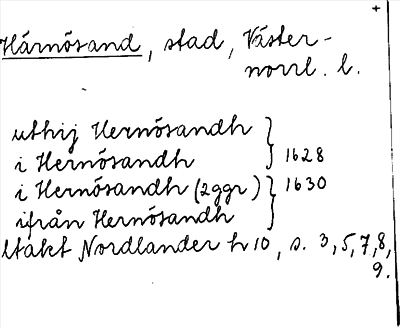 Härnösand, stad, Väster-
norrl. l.
uthij Hernösandh
i Hernösandh } 1628
i Hernösandh (2 ggr) } 1630
ifrån Hernösandh
Utakt Nordlander h 10, s. 3, 5, 7, 8,
9.